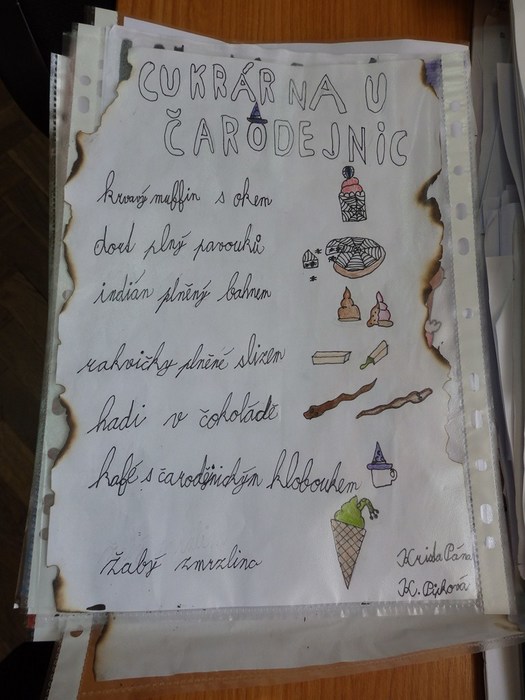 CUKRÁRNA U
ČARODEJNIC
krvavý muffin s okem
dort plný pavouků
indián plněný bahnem
rakvičky plněné slizem
hadi v čokoládě
kafé s čarodějnickým kloboukem
žabý zmrzlina
K.